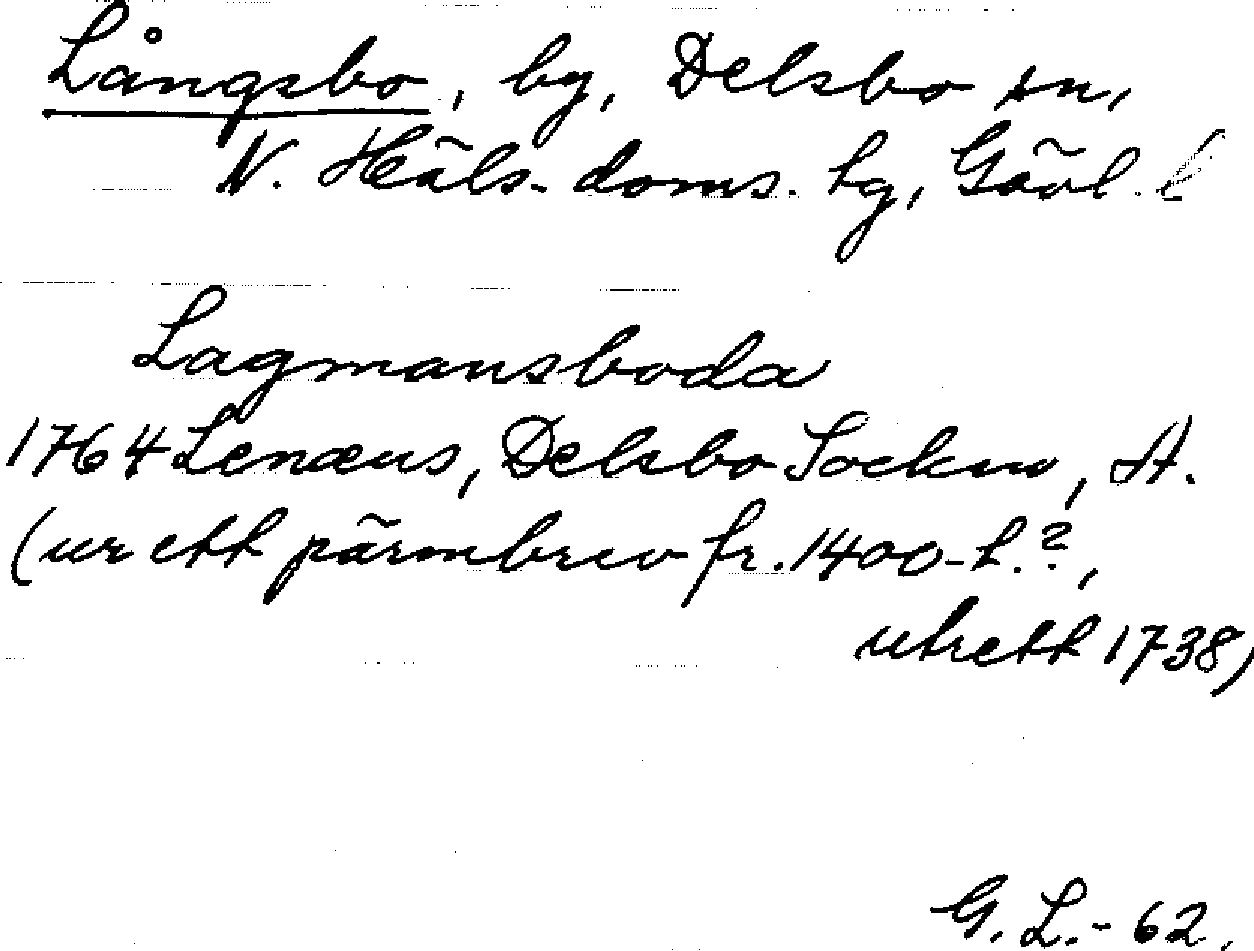 Långsbo, by, Delsbo sn,
N. Häls. doms. hg, Gävl. l
Lagmansboda
1764 Lenæus, Delsbo Socken, A.
(ur ett pärmbrev fr. 1400-t.?,
utrett 1738)
G. L. - 62.